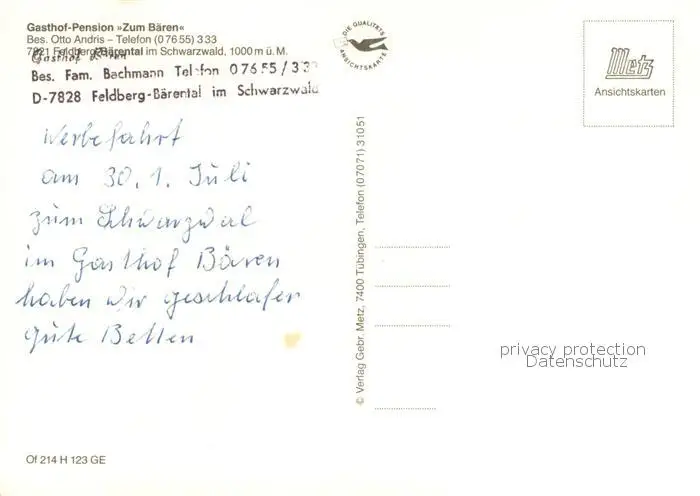 Gasthof-Pension »Zum Bären«
Bes. Otto Andris – Telefon (0 76 55) 3 33
7821 Feldberg-Bärental im Schwarzwald, 1000 m ü. M.
Gasthof Bären
Bes. Fam. Bachmann Telefon 07655/333
D-7828 Feldberg-Bärental im Schwarzwald
Werbefahrt
am 30. 1. Juli
zum Schwarzwal
im Gasthof Bären
haben wir geschlafen
gute Betten
Of 214 H 123 GE
DIE QUALITÄTS
ANSICHTSKARTE
© Verlag Gebr. Metz, 7400 Tübingen, Telefon (07071) 31051
Metz
Ansichtskarten
privacy protection
Datenschutz